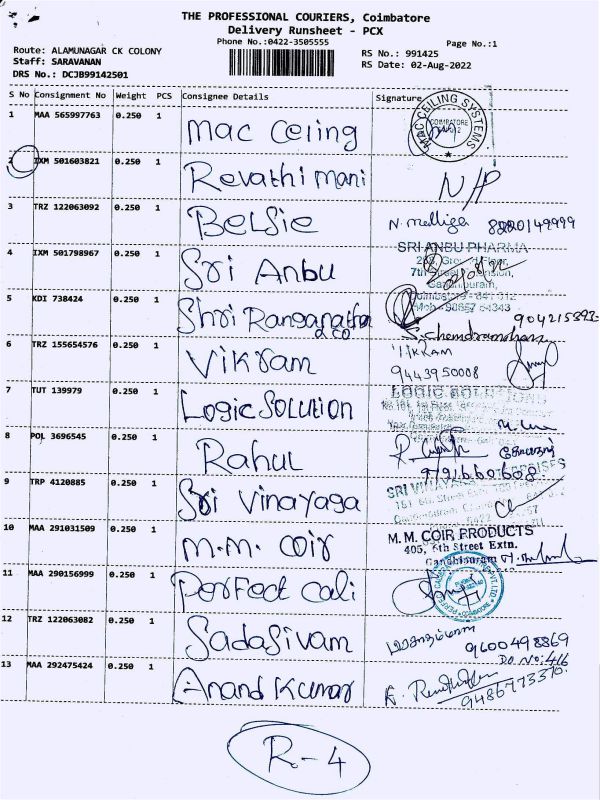 THE PROFESSIONAL COURIERS, Coimbatore
Delivery Runsheet - PCX
Phone No.:0422-3505555
Page No.:1
Route: ALAMUNAGAR CK COLONY
RS No.: 991425
Staff: SARAVANAN
RS Date: 02-Aug-2022
DRS No.: DCJB99142501
S No Consignment No Weight PCS Consignee Details Signature
1 MAA 565997763 0.250 1 Mac Ceiing
MAC CEILING SYSTEMS
COIMBATORE
2 IXM 501603821 0.250 1 Revathi mani N/P
3 TRZ 122063092 0.250 1 Belsie N. malliga 8220149999
4 IXM 501798967 0.250 1 Sri Anbu
SRI ANBU PHARMA
Gandhipuram,
5 KDI 738424 0.250 1 Shri Ranganathan & co
904215393
6 TRZ 155654576 0.250 1 Vikram
9443950008
7 TUT 139979 0.250 1 Logic Solution
LOGIC SOLUTIONS
8 POL 3696545 0.250 1 Rahul
9 TRP 4120885 0.250 1 Sri Vinayaga
SRI VINAYAGA ENTERPRISES
10 MAA 291031509 0.250 1 M.M. coir
M.M. COIR PRODUCTS
405, 6th Street Extn.
Gandhipuram
11 MAA 290156999 0.250 1 Perfect cali
12 TRZ 122063082 0.250 1 Sadasivam
9600498869
DO NO: 416
13 MAA 292475424 0.250 1 Anand Kumar
9486773370
R-4